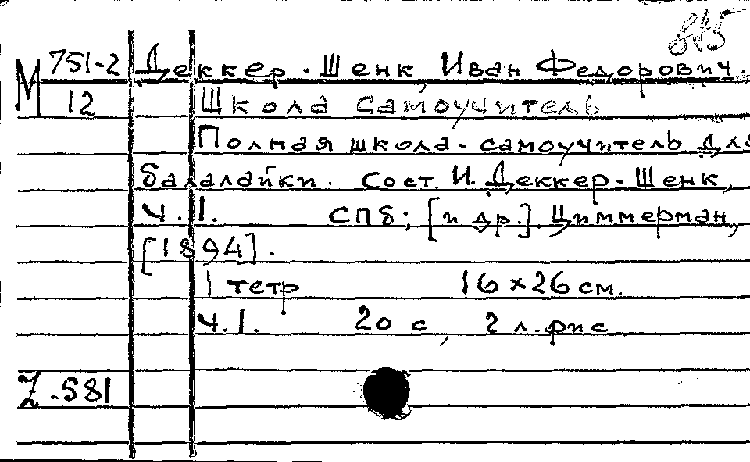 815
М 751-2 Деккер-Шенк, Иван Федорович.
12 Школа самоучитель
Полная школа-самоучитель для
балалайки. Сост. И. Деккер-Шенк,
Ч. I. СПб; [и др]. Циммерман,
[1894].
1 тетр 16×26 см.
Ч. I. 20 с, 2 л. рис
Z.581